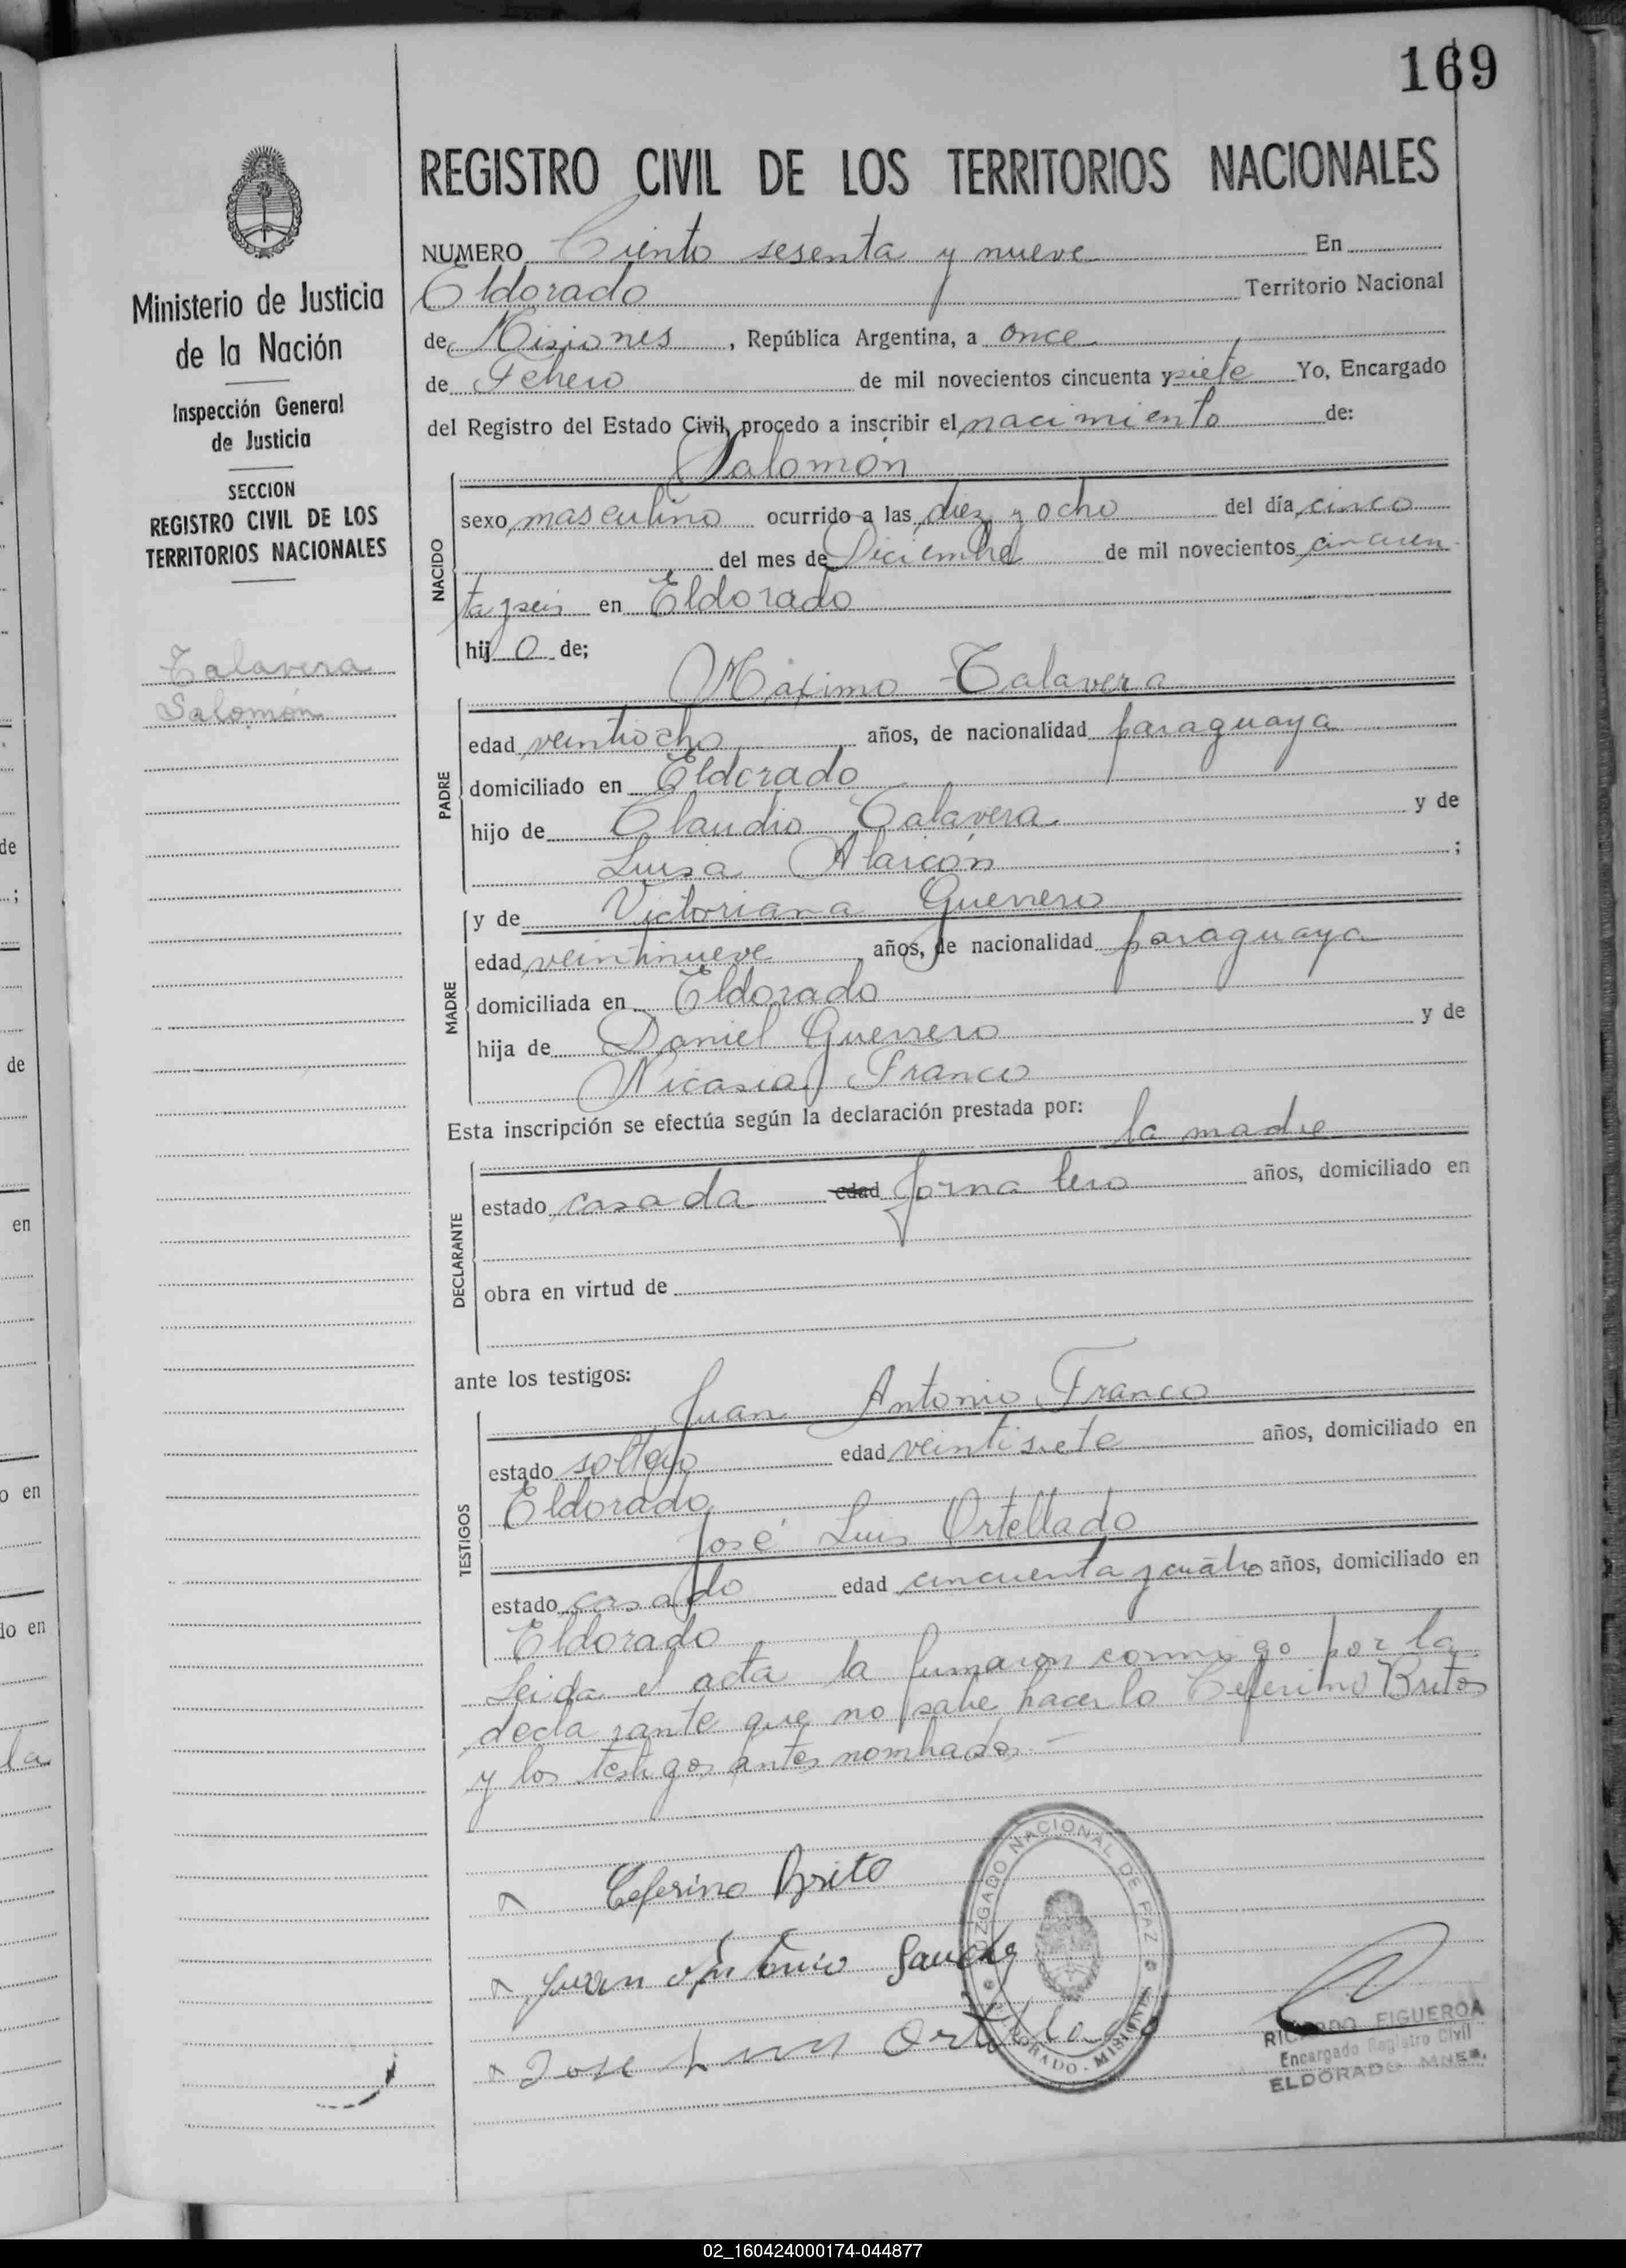 169
REGISTRO CIVIL DE LOS TERRITORIOS NACIONALES
Ministerio de Justicia
de la Nación
Inspección General
de Justicia
SECCION
REGISTRO CIVIL DE LOS
TERRITORIOS NACIONALES
Talavera
Salomón
NUMERO Ciento sesenta y nueve En
Eldorado Territorio Nacional
de Misiones, República Argentina, a once
de Febrero de mil novecientos cincuenta y siete Yo, Encargado
del Registro del Estado Civil, procedo a inscribir el nacimiento de:
Salomón
NACIDO
sexo masculino ocurrido a las diez y ocho del día cinco
del mes de Diciembre de mil novecientos cincuen
ta y seis en Eldorado
hijo de;
Máximo Talavera
PADRE
edad veintiocho años, de nacionalidad paraguaya
domiciliado en Eldorado
hijo de Claudio Talavera y de
Luisa Alarcón ;
MADRE
y de Victoriana Guerrero
edad veintinueve años, de nacionalidad paraguaya
domiciliada en Eldorado
hija de Daniel Guerrero y de
Nicasia Franco
Esta inscripción se efectúa según la declaración prestada por:
la madre
DECLARANTE
estado casada edad jornalero años, domiciliado en
obra en virtud de
ante los testigos:
Juan Antonio Franco
TESTIGOS
estado soltero edad veintisiete años, domiciliado en
Eldorado
José Luis Ortellado
estado casado edad cincuenta y cuatro años, domiciliado en
Eldorado
Leida el acta la firmaron conmigo por la
declarante que no sabe hacerlo Ceferino Britos
y los testigos antes nombrados
Ceferino Brito
Juan Antonio
Jose Luis Ortellado
JUZGADO NACIONAL DE PAZ
ELDORADO - MISIONES
RICARDO FIGUEROA
Encargado Registro Civil
ELDORADO - MNES.
de
;
de
en
o en
do en
la
02_160424000174-044877